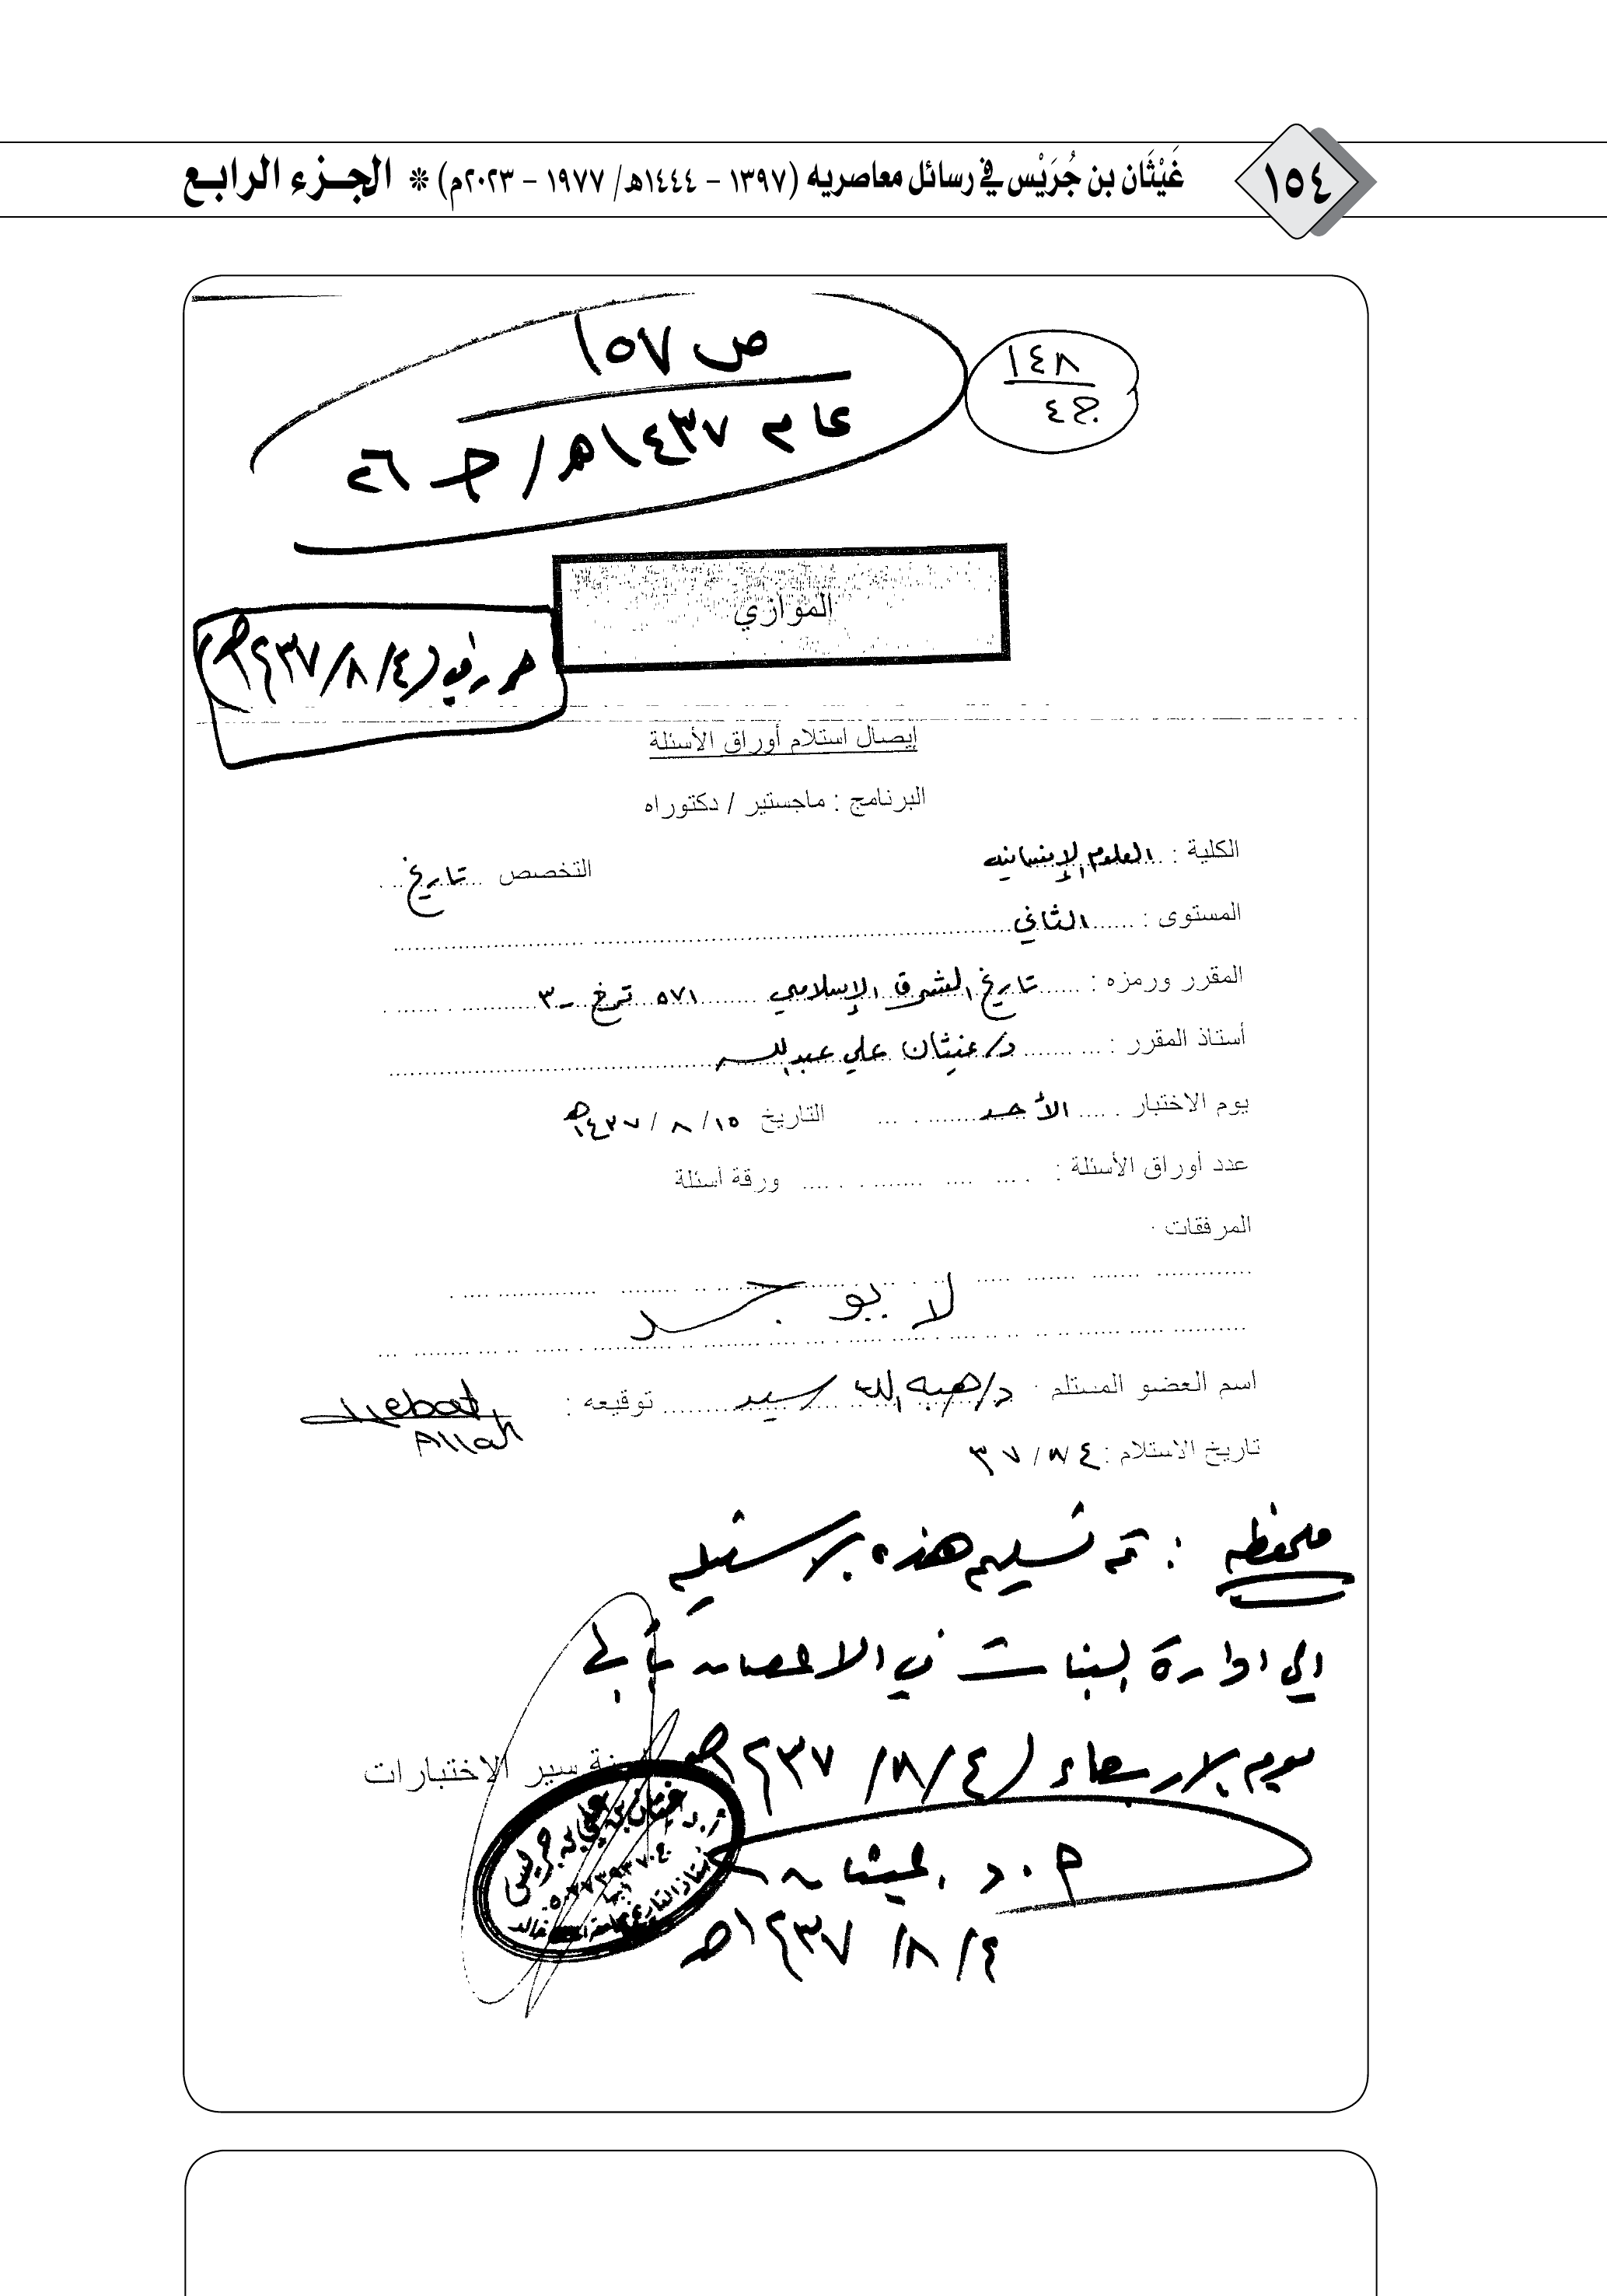 ١٥٤
غَيْثَان بن جُرَيْس في رسائل معاصريه (١٣٩٧ - ١٤٤٤هـ/ ١٩٧٧ - ٢٠٢٣م) * الجزء الرابع
١٤٨
ج٤
ص ١٥٧
عام ١٤٣٧هـ / ج ٢٦
الموازي
حرر في (٤/٨/١٤٣٧هـ)
إيصال استلام أوراق الأسئلة
البرنامج : ماجستير / دكتوراه
الكلية : العلوم الإنسانية التخصص تاريخ
المستوى : الثاني
المقرر ورمزه : تاريخ المشرق الإسلامي ٥٧١ ترخ - ٣
أستاذ المقرر : د/ غيثان علي عبدالله
يوم الاختبار الأحد التاريخ ١٥ / ٨ / ١٤٣٧هـ
عدد أوراق الأسئلة : ورقة أسئلة
المرفقات
لا يوجد
اسم العضو المستلم د/ هبه الله سيد توقيعه : Hebat Allah
تاريخ الاستلام : ٤/٨/٣٧
ملحوظه : تم تسليم هذه الاسئله
الى ادارة البنات في
يوم الاربعاء (٤/٨/١٤٣٧هـ
سير الاختبارات
أ.د. غيثان بن علي بن جريس
أبها
أستاذ التاريخ بجامعة الملك خالد
أ.د. غيثان
٤/٨/١٤٣٧هـ